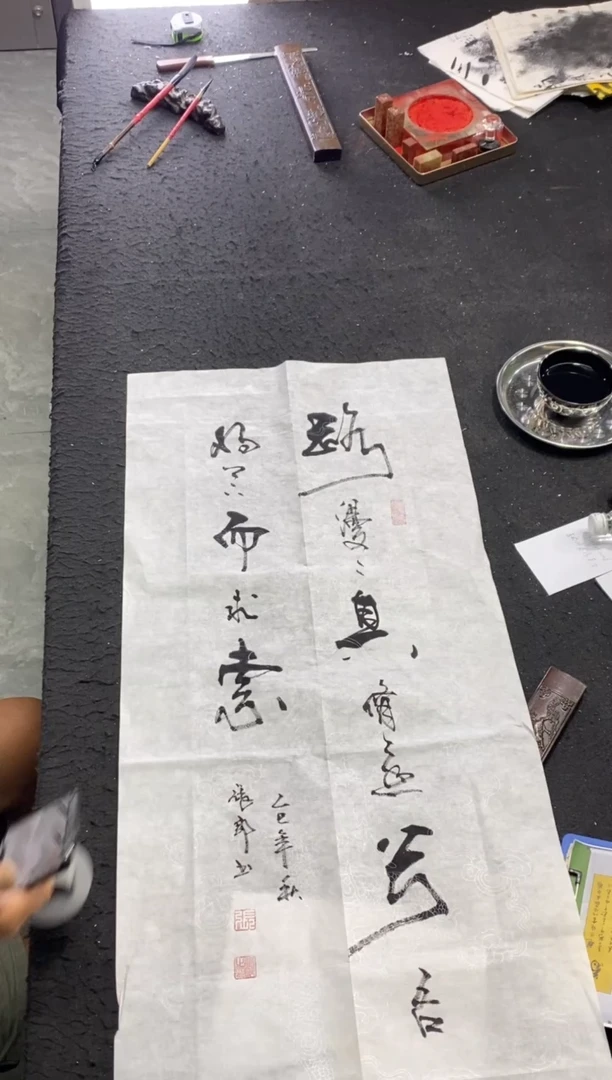 路漫〻其修遠兮吾
将上下而求索
乙巳年秋
书